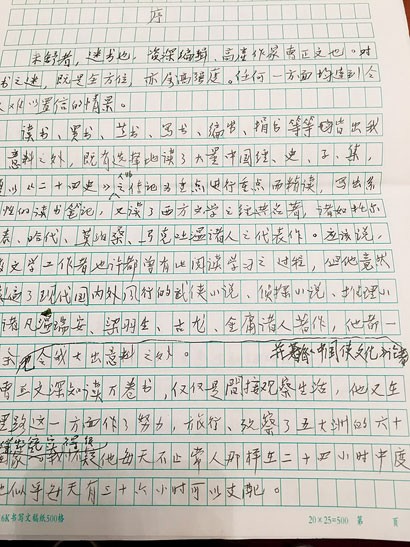 序
米舒者，迷书也，资深编辑、高产作家曹正文也。对
书之迷，既是全方位，亦全高强度。任何一方面均达到令
人难以置信的情景。
读书、买书、艺书、写书、编书、捐书等等均皆出我
意料之外，既有选择地读了大量中国经、史、子、集，
以《二十四史》人物之传记为重点进行重点而精读，写出系
性的读书笔记，又读了西方文学之经典名著，诸如托尔
泰、哈代、莫泊桑、马克吐温诸人之代表作。应该说，
文学工作者也许都曾有此阅读学习之过程，但他竟然
读遍了现代国内外风行的武侠小说、侦探小说、推理小
诸凡温瑞安、梁羽生、古龙、金庸诸人著作，他都一
令我大出意料之外。
并著《中国侠文化》诸书
曹正文深知读万卷书，仅仅是间接观察生活，他又在
这一方面作了努力，旅行、观察了五大洲的六十
国家
我疑他每天不止常人那样在二十四小时中度
似乎每天有三十六小时可以支配。
6K书写文稿纸500格
20×25=500 第 页